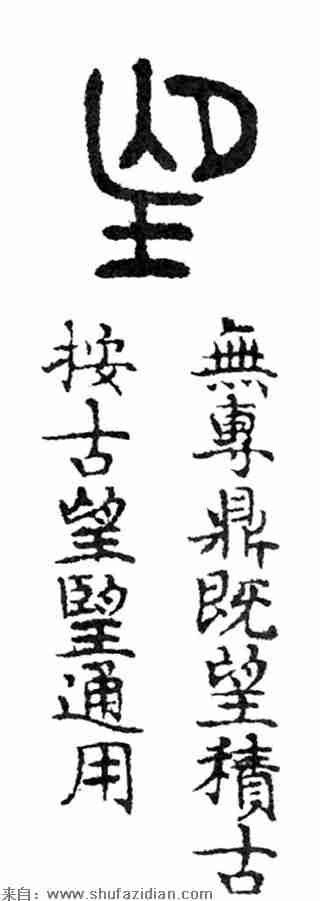 望
無專鼎既望積古
按古望朢通用
来自：www.shufazidian.com